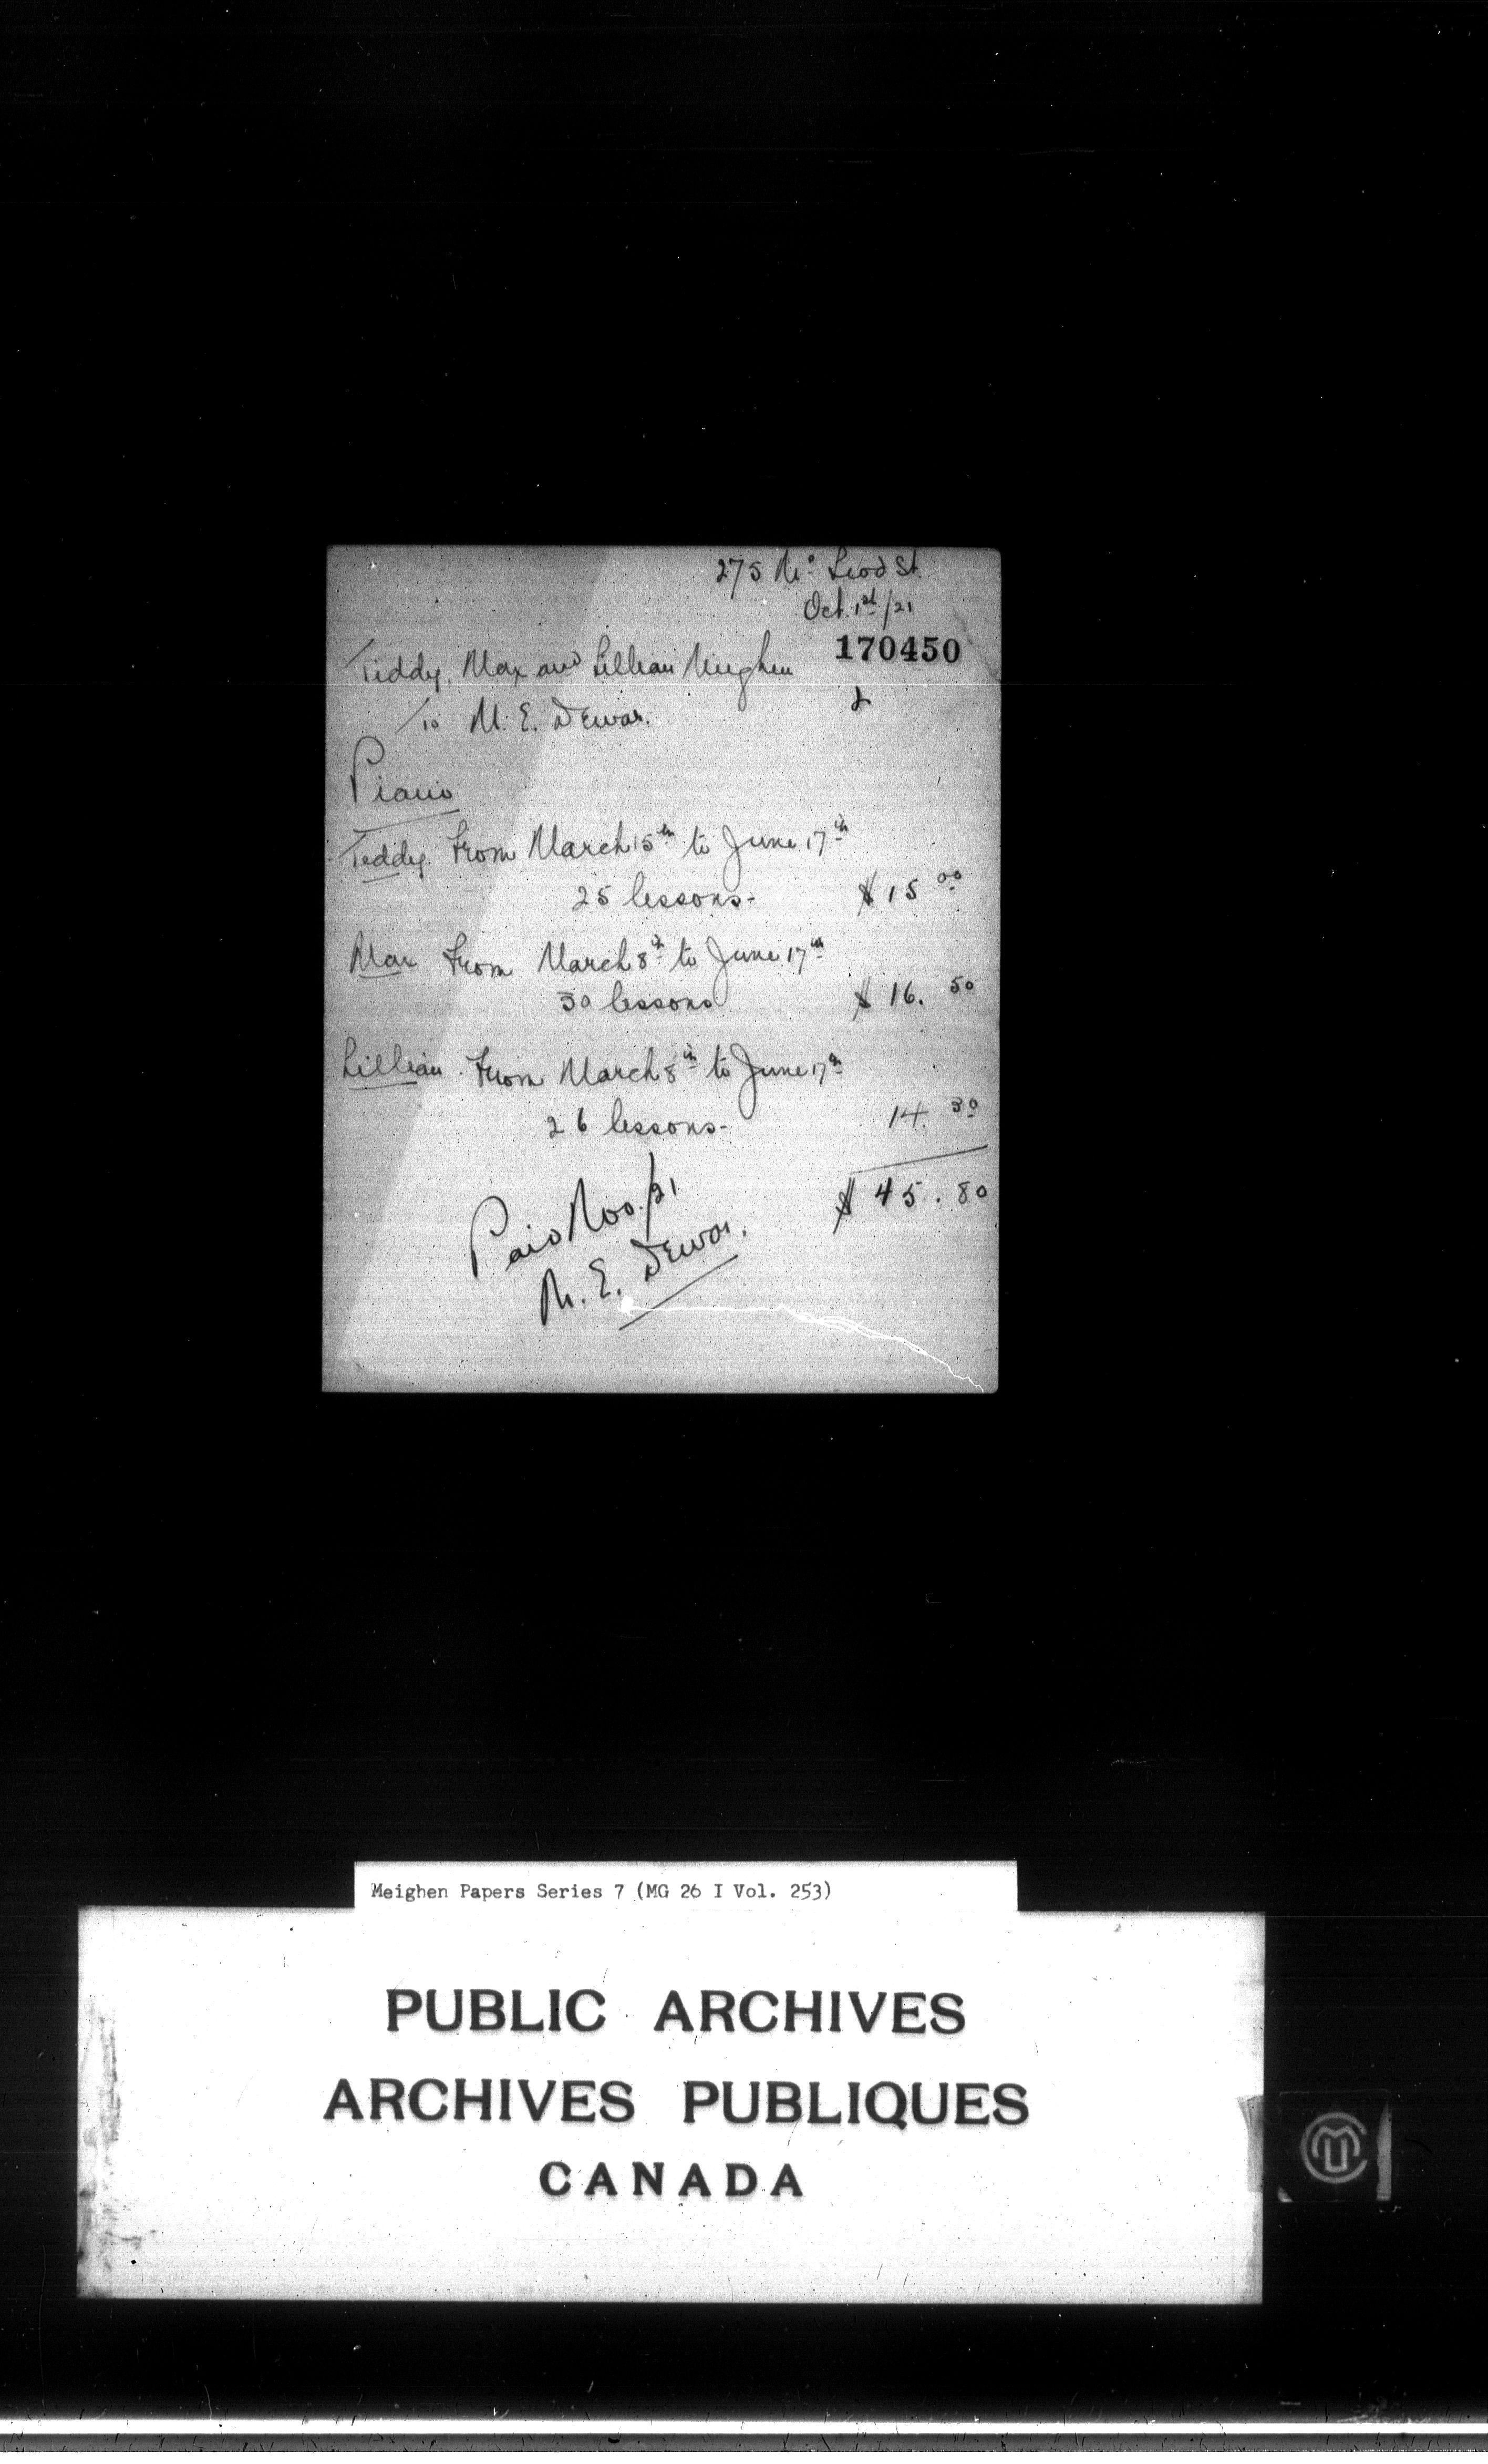 275 Mc Leod St.
Oct. 1st/21
170450
Teddy, Max and Lillian Meighen
To M. E. Dewar.
Piano
Teddy. From March 15th to June 17th
25 lessons- $15 00
Max From March 8th to June 17th
30 lessons $16. 50
Lillian. From March 8th to June 17th
26 lessons- 14. 30
$45.80
Paid Nov./21
M. E. Dewar.
Meighen Papers Series 7 (MG 26 I Vol. 253)
PUBLIC ARCHIVES
ARCHIVES PUBLIQUES
CANADA